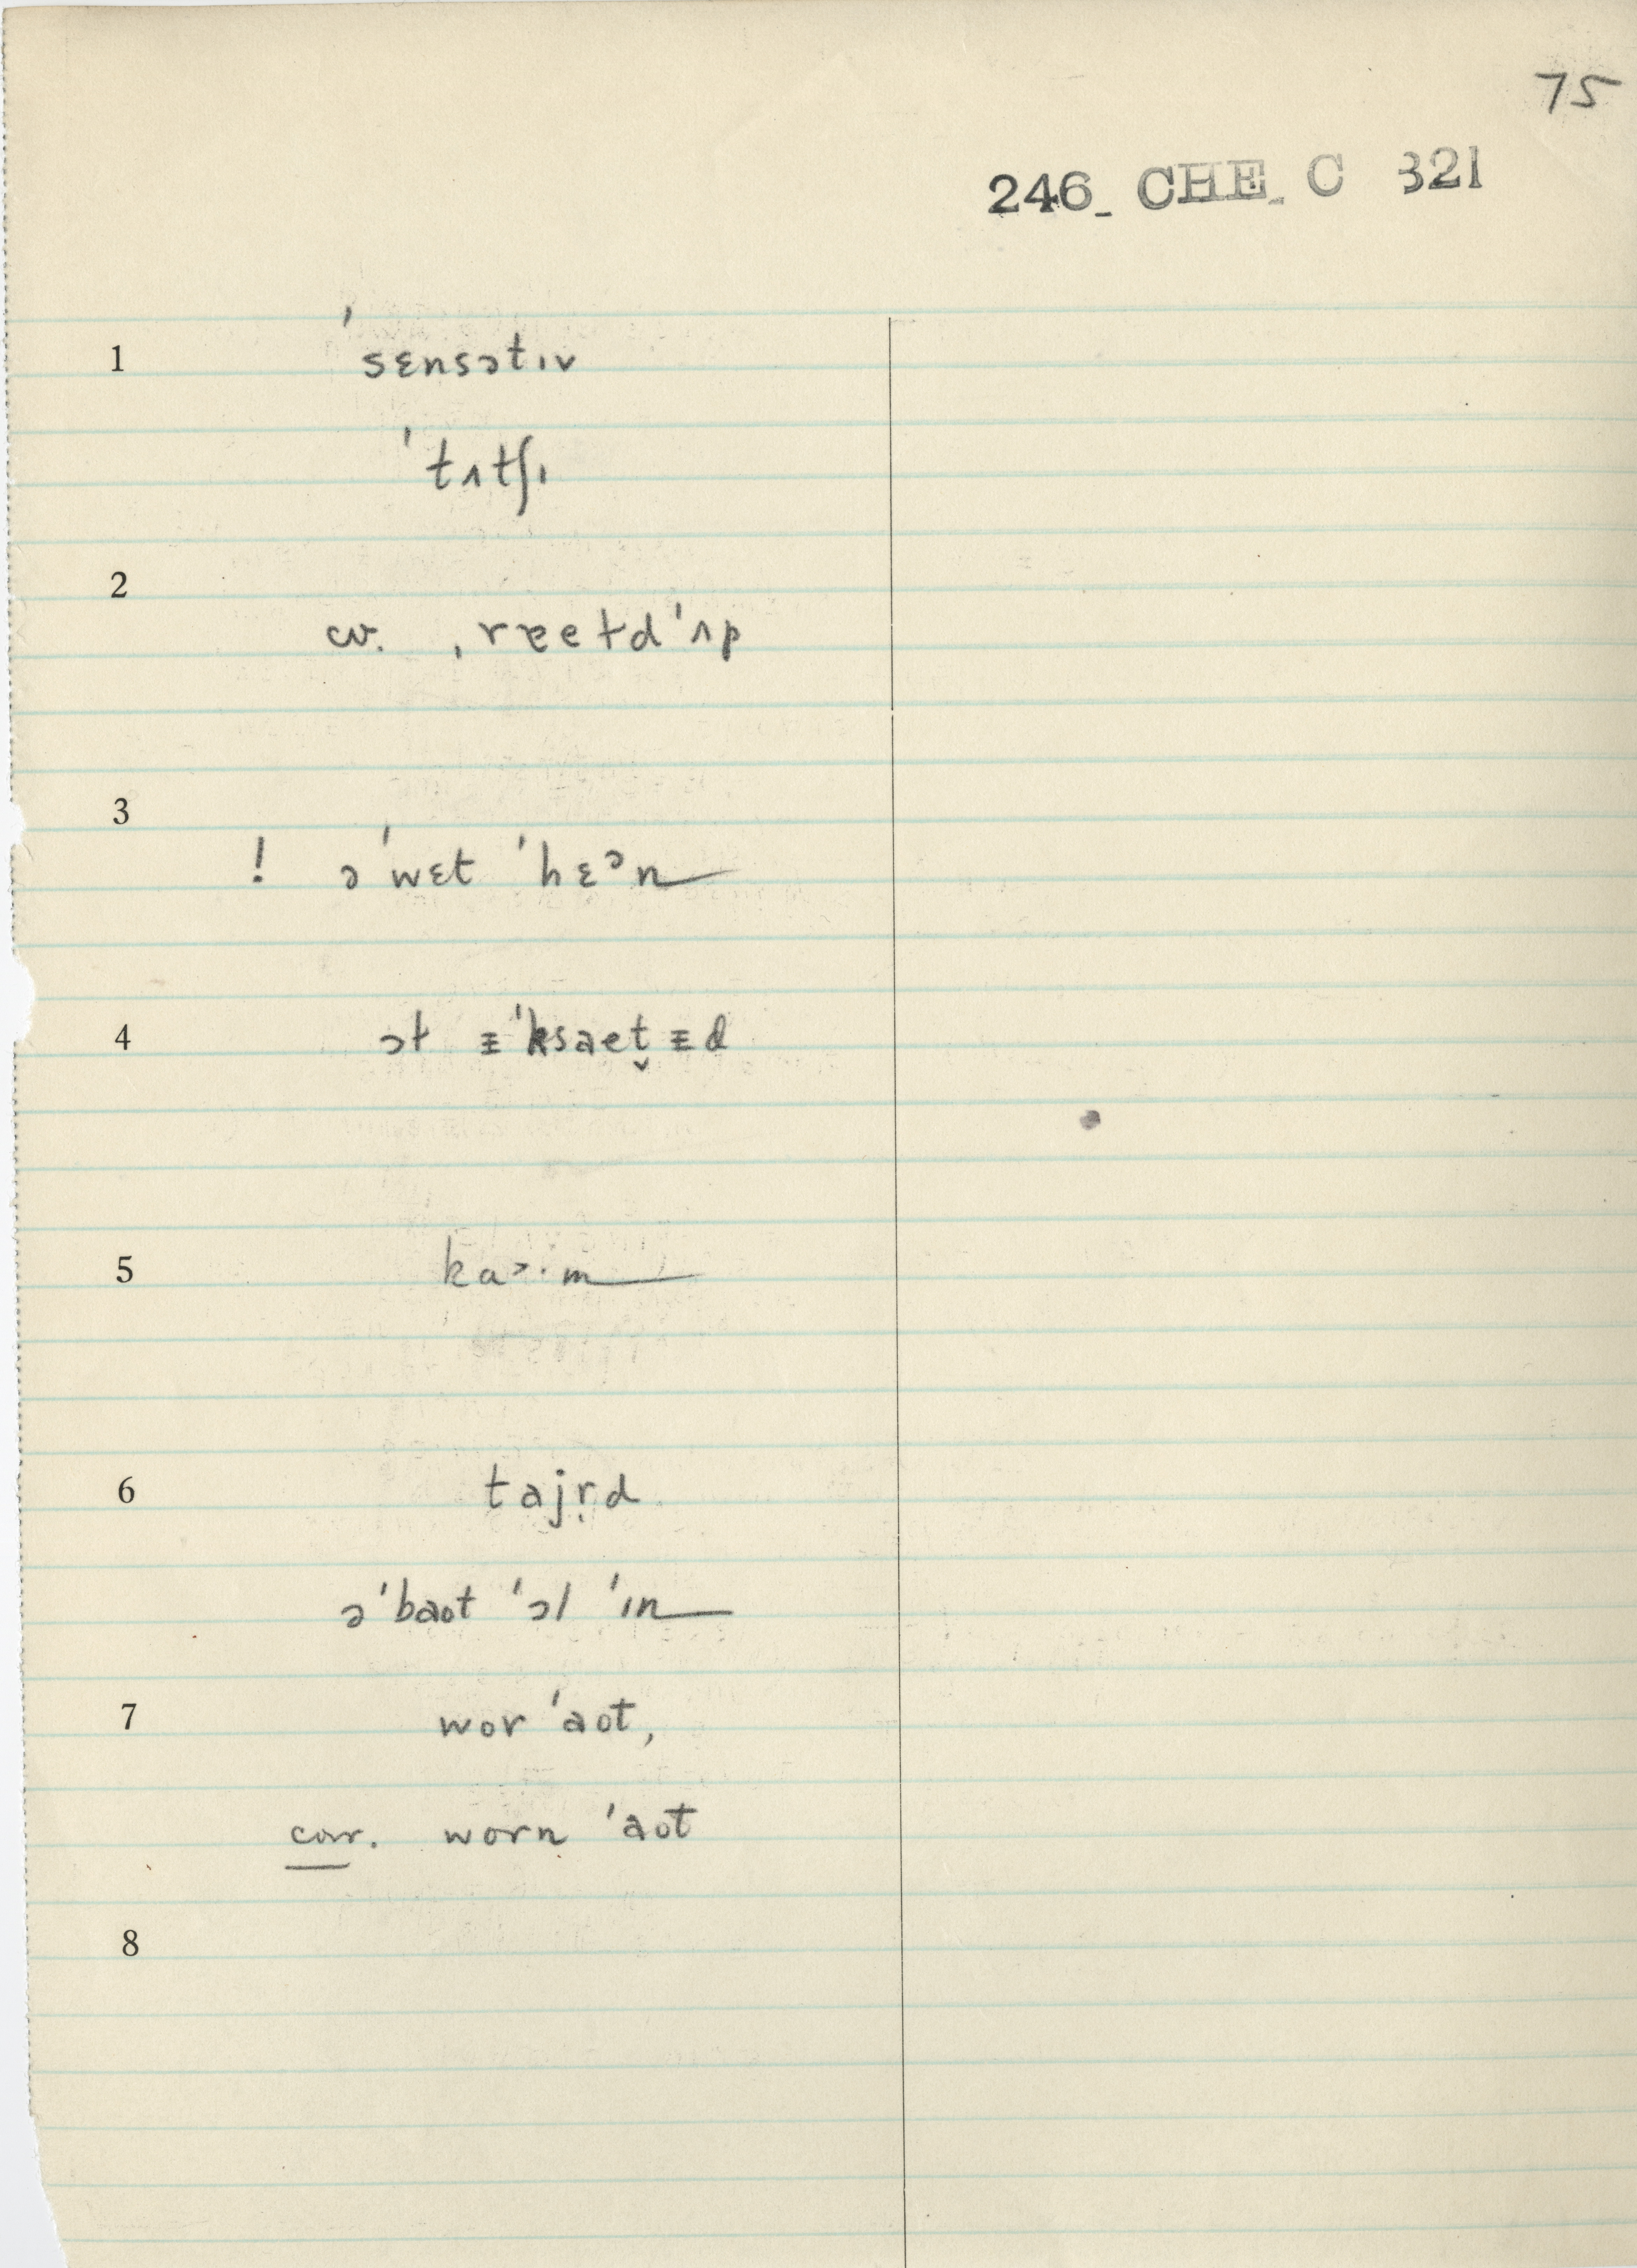 75
246_ CHE_ C 321
1 ˈsɛnsətɪv
ˈtʌtʃɪ
2
cv. ˌrɐeɫdˈʌp
3
! əˈwɛt ˈhɛᵊn
4 ɔɫ ᵻˈksaet̬ᵻd
5 kaᵊ·m
6 tajr̩d
əˈbaot ˈɔl ˈɪn
7 wor ˈaot,
cor. worn ˈaot
8